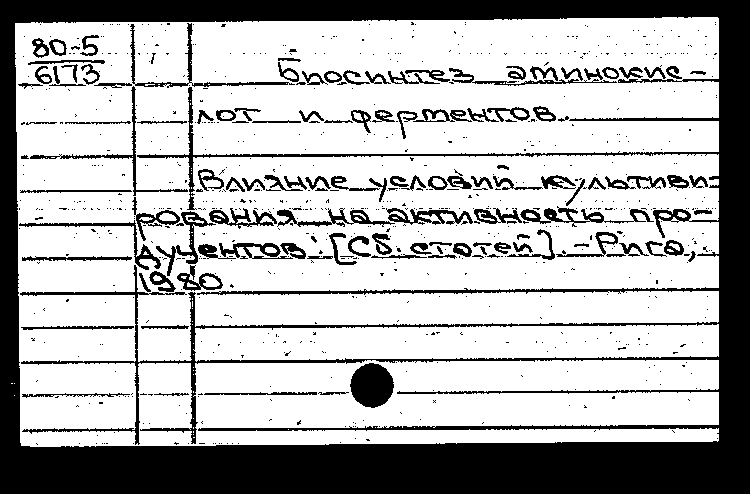 80-5
6173
Биосинтез аминокис-
лот и ферментов.
Влияние условий культиви-
рования на активность про-
дуцентов: [Сб. статей]. - Рига,
1980.